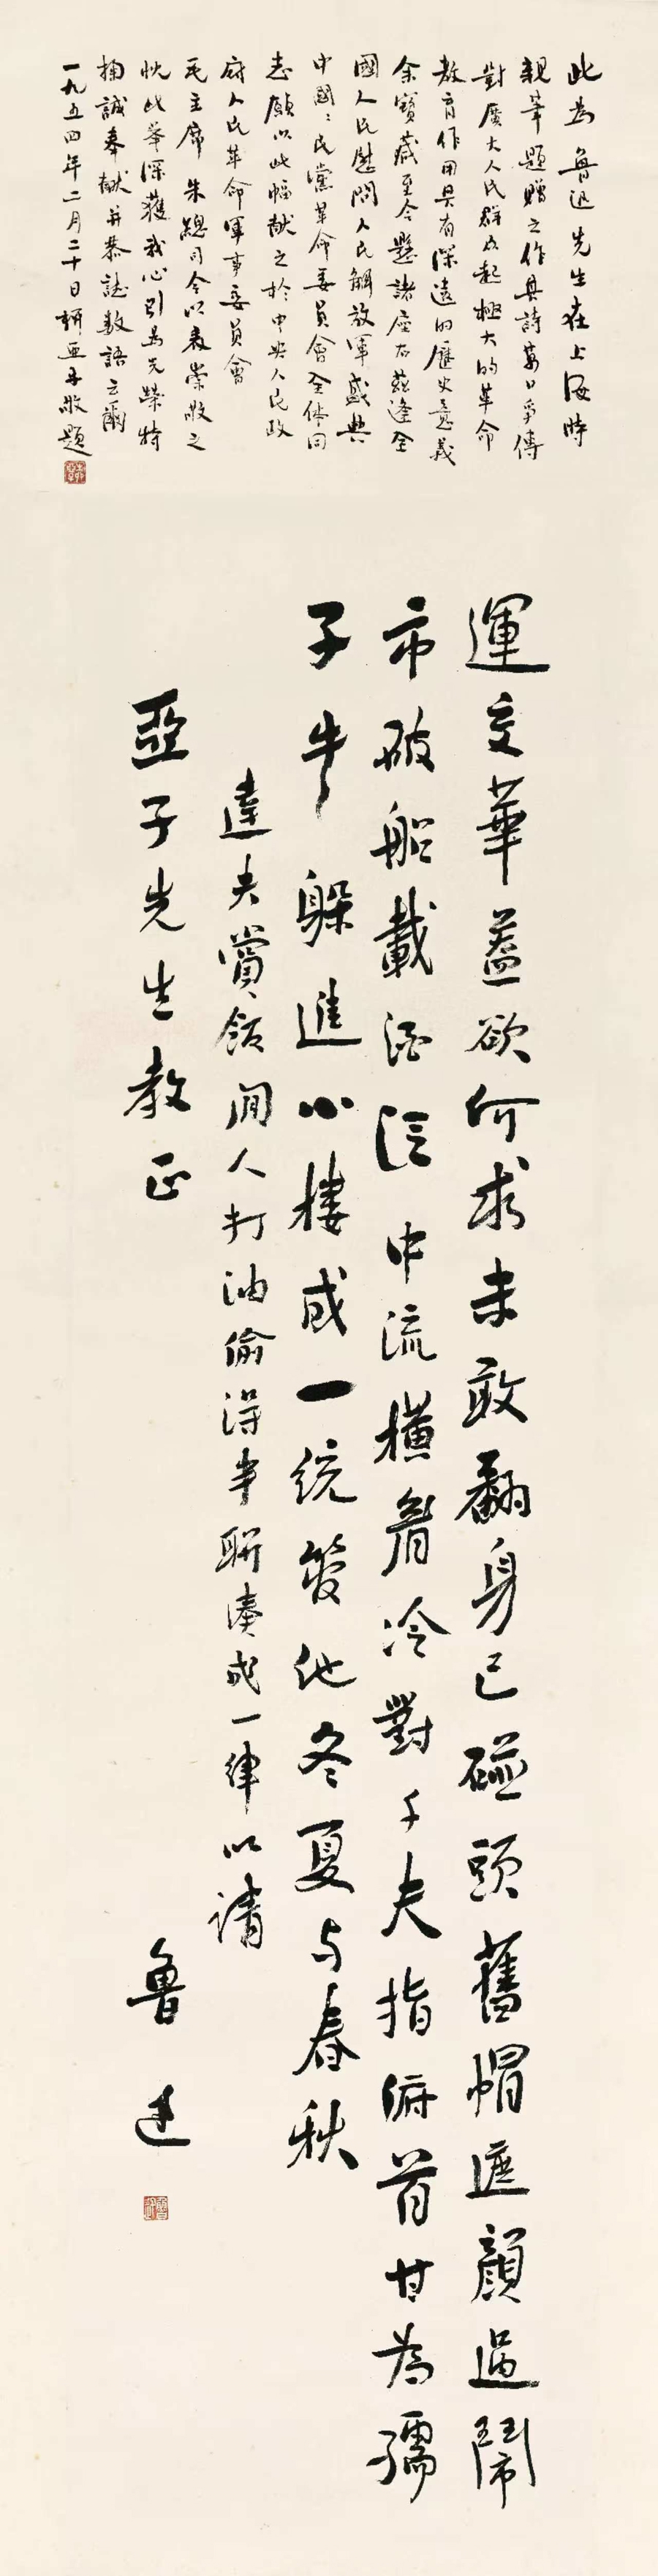 此为鲁迅先生在上海时
親筆題贈之作其詩萬口爭傳
對廣大人民群众起極大的革命
教育作用具有深遠的歷史意義
余寶藏至今懸諸座右兹逢全
國人民慰問人民解放軍盛典
中國〻民黨革命委員會全体同
志願以此幅献之於中央人民政
府人民革命軍事委員會
毛主席 朱總司令以表崇敬之
忱此举深獲我心引為光榮特
掬誠奉献并恭誌数語云爾
一九五四年二月二十日柳亞子敬題
運交華蓋欲何求未敢翻身已碰頭舊帽遮顔過鬧
市破船載酒泛中流横眉冷對千夫指俯首甘為孺
子牛躲進小樓成一統管他冬夏与春秋
達夫賞飯閒人打油偷得半聯湊成一律以請
亞子先生教正
魯迅